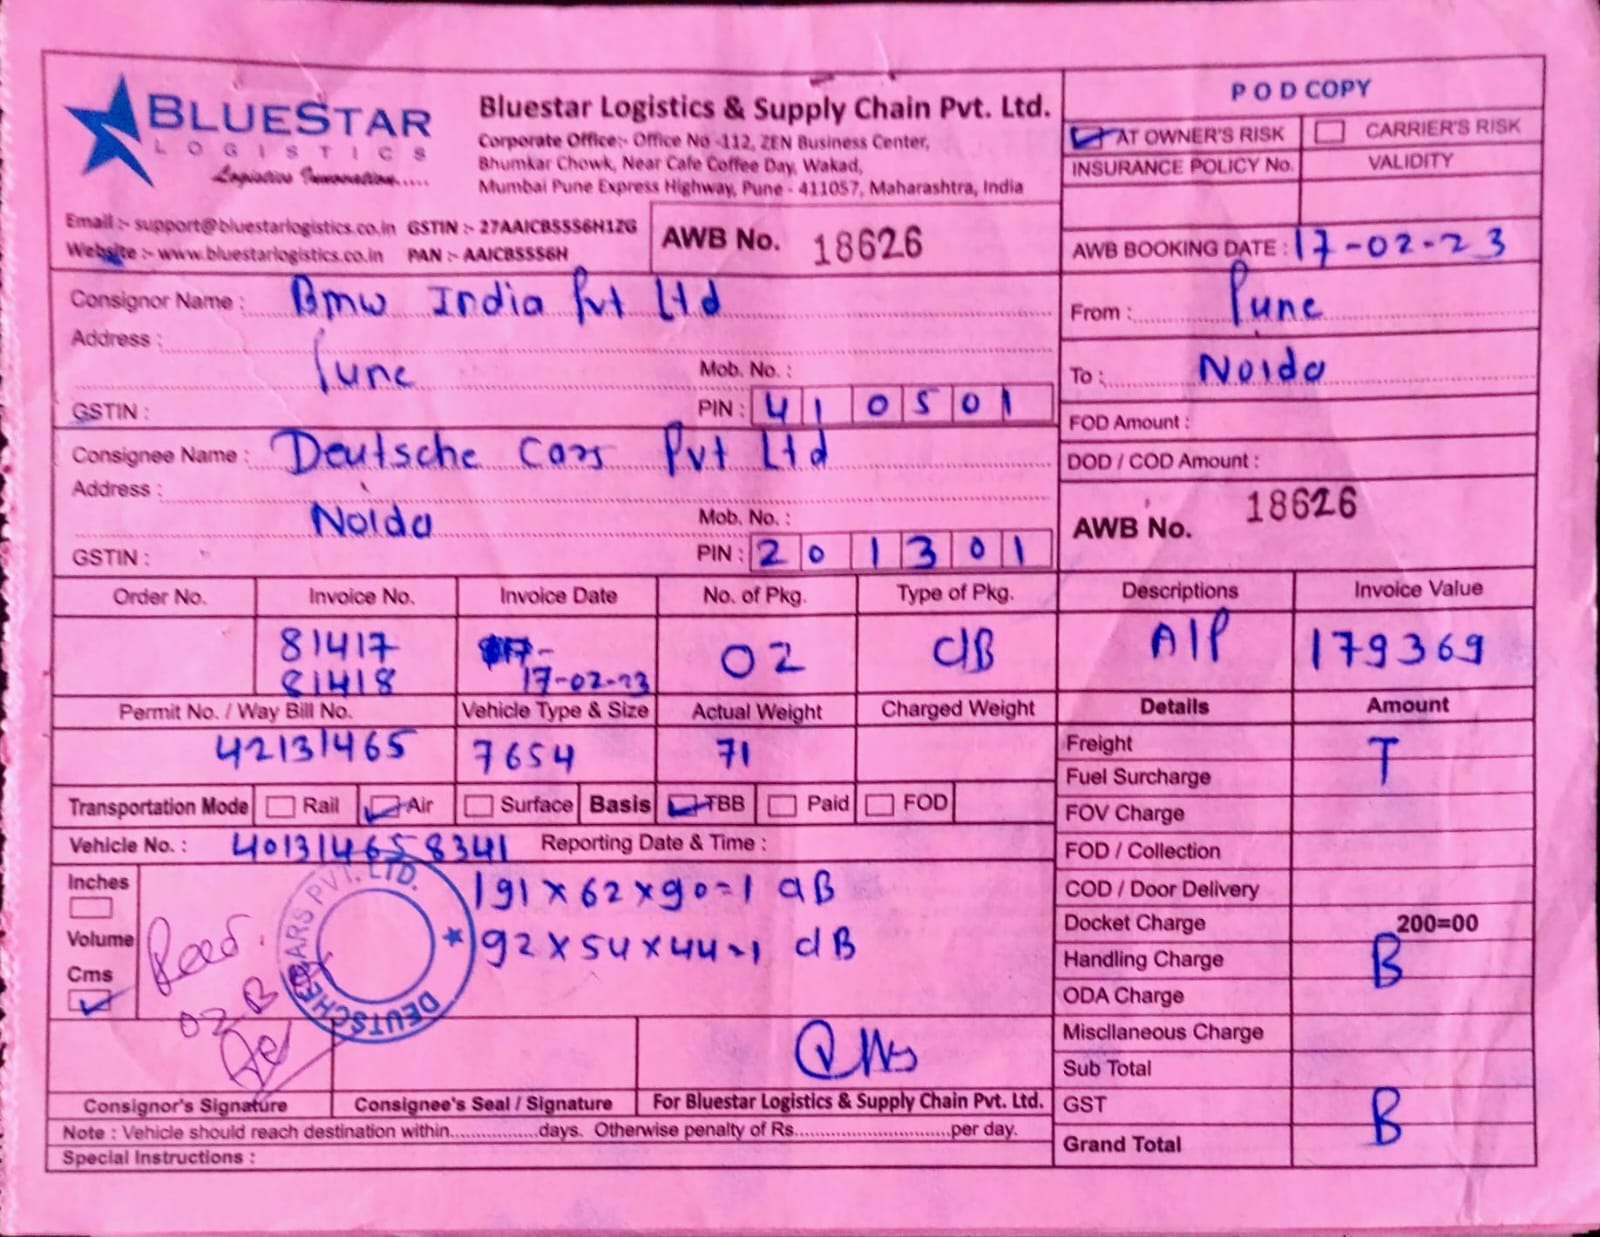 BLUESTAR
LOGISTICS
Logistics Innovation.....
Bluestar Logistics & Supply Chain Pvt. Ltd.
Corporate Office:- Office No -112, ZEN Business Center,
Bhumkar Chowk, Near Cafe Coffee Day, Wakad,
Mumbai Pune Express Highway, Pune - 411057, Maharashtra, India
Email :- support@bluestarlogistics.co.in GSTIN :- 27AAICB5556H1ZG
Website :- www.bluestarlogistics.co.in PAN :- AAICB5556H
AWB No. 18626
POD COPY
AT OWNER'S RISK CARRIER'S RISK
INSURANCE POLICY No. VALIDITY
AWB BOOKING DATE : 17-02-23
Consignor Name : Bmw India Pvt Ltd
Address :
Pune Mob. No. :
GSTIN : PIN : 410501
From : Pune
To : Noida
FOD Amount :
Consignee Name : Deutsche Cars Pvt Ltd
Address :
Noida Mob. No. :
GSTIN : PIN : 201301
DOD / COD Amount :
AWB No. 18626
Order No. Invoice No. Invoice Date No. of Pkg. Type of Pkg. Descriptions Invoice Value
81417 02 CB A/P 179369
81418 17-02-23
Permit No. / Way Bill No. Vehicle Type & Size Actual Weight Charged Weight Details Amount
42131465 7654 71
Freight T
Fuel Surcharge
Transportation Mode Rail Air Surface Basis TBB Paid FOD
FOV Charge
Vehicle No. : 401314658341 Reporting Date & Time :
FOD / Collection
Inches 191 x 62 x 90=1 CB
COD / Door Delivery
Volume 92 x 54 x 44=1 CB
Docket Charge 200=00
Cms
Handling Charge B
ODA Charge
DEUTSCHE CARS PVT. LTD.
Recd.
02 B
Miscllaneous Charge
Sub Total
Consignor's Signature Consignee's Seal / Signature For Bluestar Logistics & Supply Chain Pvt. Ltd.
GST B
Note : Vehicle should reach destination within.................days. Otherwise penalty of Rs.............................per day.
Grand Total
Special Instructions :